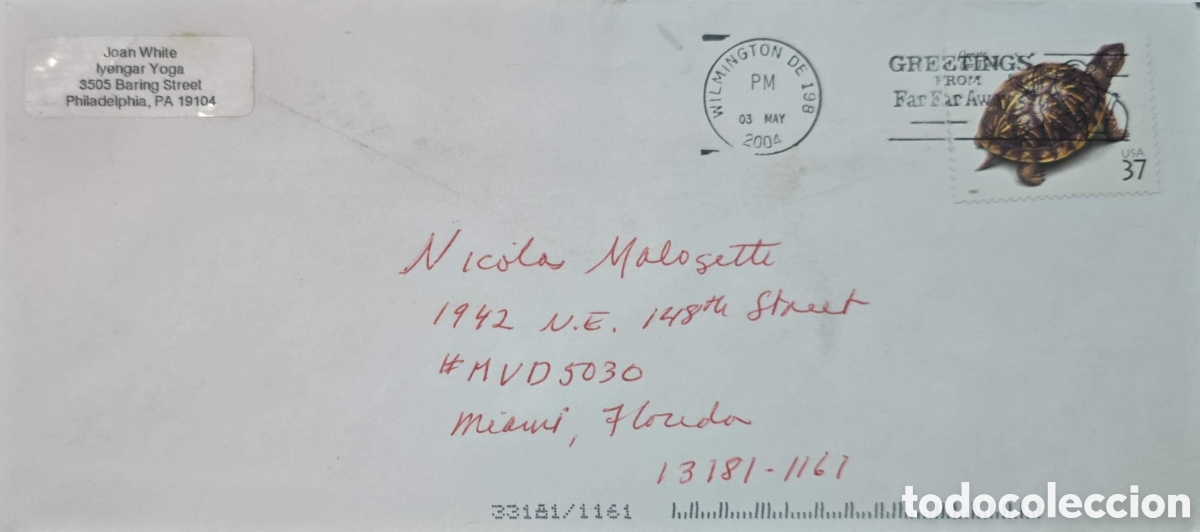 Joan White
Iyengar Yoga
3505 Baring Street
Philadelphia, PA 19104
WILMINGTON DE 198
PM
03 MAY
2004
GREETINGS
FROM
Far Far Away
USA
37
Nicolas Malogette
1942 N.E. 148th Street
#MVD5030
Miami, Florida
13181-1161
33181/1161
todocoleccion